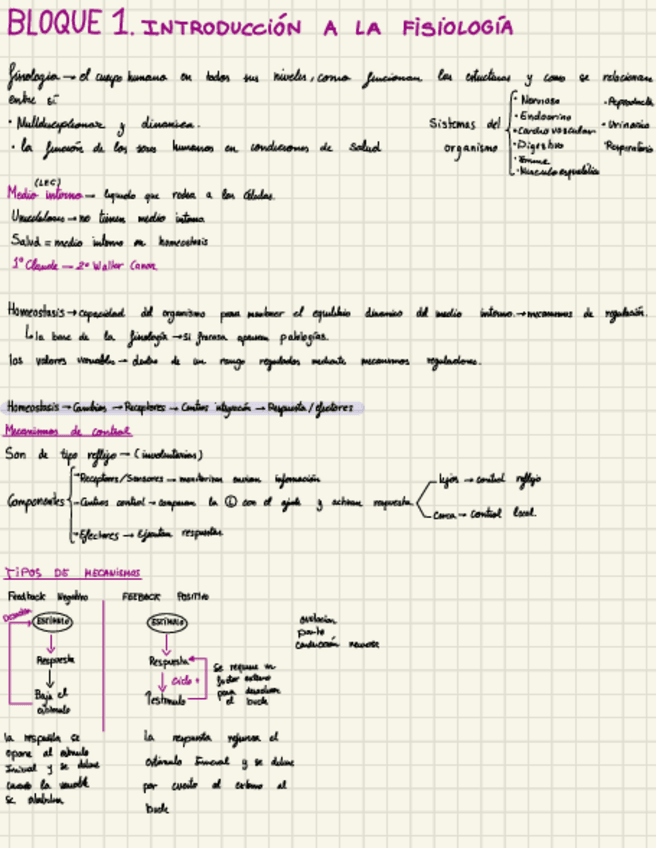 BLOQUE 1. INTRODUCCIÓN A LA FISIOLOGÍA
fisiología → el cuerpo humano en todos sus niveles, como funcionan las estructuras y como se relacionan
entre sí
· Multidisciplinar y dinamica.
· la función de los seres humanos en condiciones de salud
Sistemas del organismo
· Nervioso
· Endocrino
· Cardio vascular
· Digestivo
· Inmune
· Musculo esquelético
· Reproductor
· Urinario
· Respiratorio
(LEC)
Medio interno → liquido que rodea a las células.
Unicelulares → no tienen medio interno
Salud = medio interno en homeostasis
1º Claude → 2º Walter Canon
Homeostasis → capacidad del organismo para mantener el equilibrio dinamico del medio interno. → mecanismos de regulación.
↳ la base de la fisiología → si fracasa aparecen patologías.
los valores variables → dentro de un rango regulados mediante mecanismos reguladores.
Homeostasis → Cambios → Receptores → Centros integración → Respuesta / efectores
Mecanismos de control
Son de tipo reflejo → (involuntarios)
Componentes
→ Receptores/Sensores → monitorizan envian información
→ Centros control → comparan la con el ajuste y activan respuesta
lejos → control reflejo
cerca → control local.
→ Efectores → Ejecutan respuestas
TIPOS DE MECANISMOS
Feedback Negativo
ESTIMULO
Respuesta
Baja el estimulo
la respuesta se
opone al estimulo
inicial y se detiene
cuando la variable
se estabiliza
FEEBACK POSITIVO
ESTIMULO
Respuesta
ciclo +
↑estimulo
Se requiere un
factor externo
para desactivar
el bucle
la respuesta refuerza el
estimulo inicial y se detiene
por cuenta al externo al
bucle
ovulacion
parto
conducción nerviosa